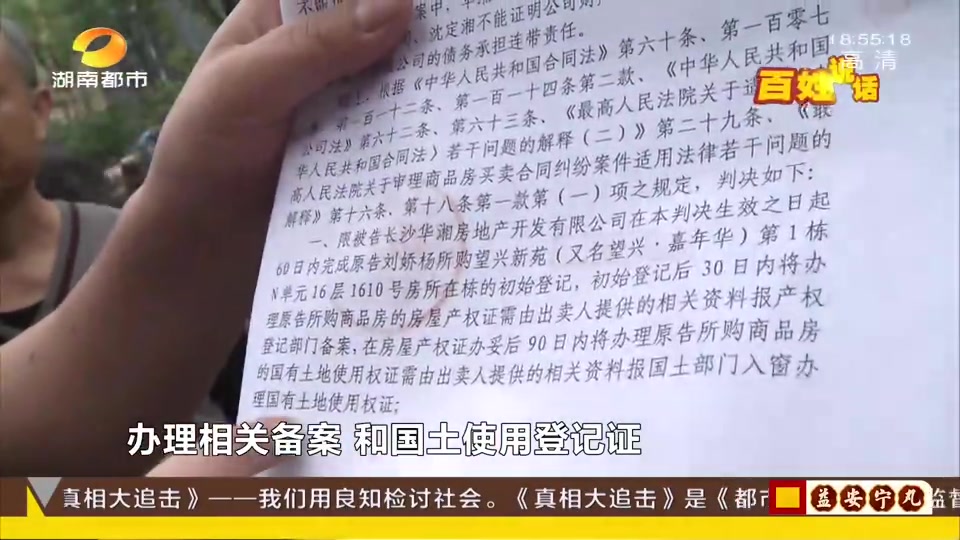 湖南都市
18:55:18
高清
百姓说话
沈定湘不能证明公司财
公司的债务承担连带责任。
根据《中华人民共和国合同法》第六十条、第一百零七
第一百一十二条、第一百一十四条第二款、《中华人民共和国
公司法》第六十二条、第六十三条、《最高人民法院关于适
华人民共和国合同法〉若干问题的解释（二）》第二十九条、《最
高人民法院关于审理商品房买卖合同纠纷案件适用法律若干问题的
解释》第十六条、第十八条第一款第（一）项之规定，判决如下：
一、限被告长沙华湘房地产开发有限公司在本判决生效之日起
60日内完成原告刘娇杨所购望兴新苑（又名望兴·嘉年华）第1栋
N单元16层1610号房所在栋的初始登记，初始登记后30日内将办
理原告所购商品房的房屋产权证需由出卖人提供的相关资料报产权
登记部门备案，在房屋产权证办妥后90日内将办理原告所购商品房
的国有土地使用权证需由出卖人提供的相关资料报国土部门入窗办
理国有土地使用权证；
办理相关备案 和国土使用登记证
真相大追击》——我们用良知检讨社会。《真相大追击》是《都市
益安宁丸
监督